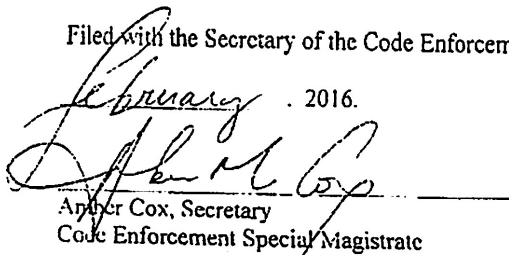 Filed with the Secretary of the Code Enforcem
February . 2016.
Amber M Cox
Amber Cox, Secretary
Code Enforcement Special Magistrate